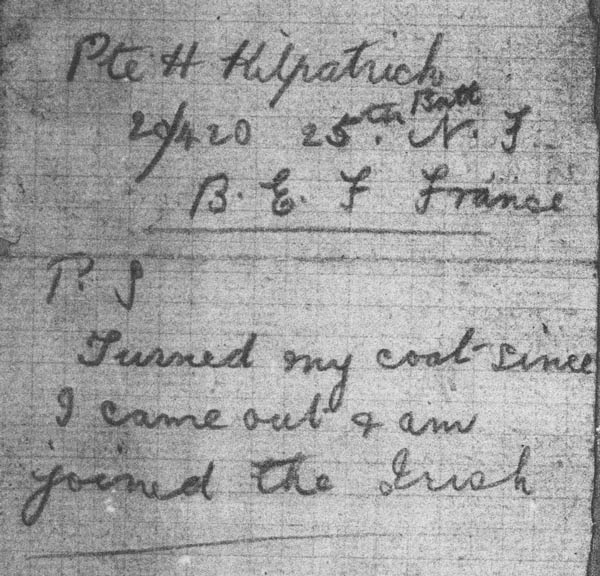 Pte H Kilpatrick
29/420 25th Batt N. F.
B. E. F France
P. S
Turned my coat since
I came out & am
joined the Irish